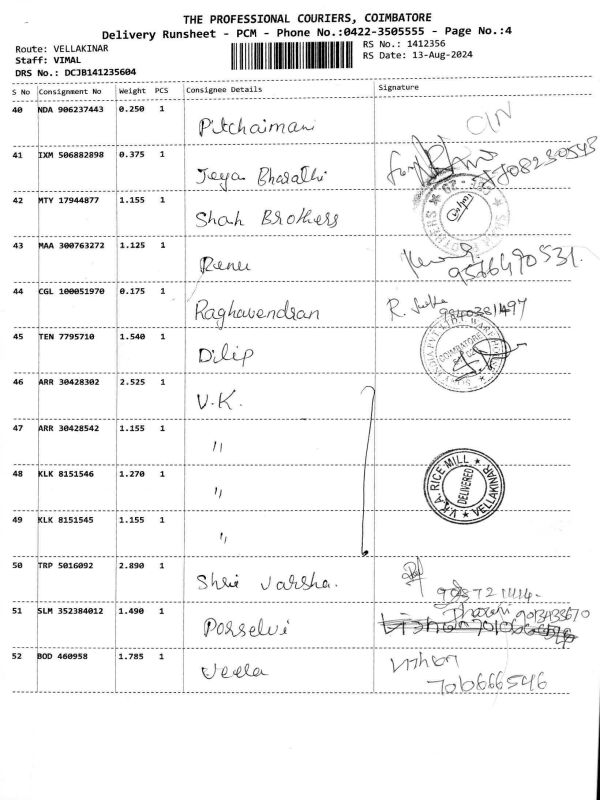 THE PROFESSIONAL COURIERS, COIMBATORE
Delivery Runsheet - PCM - Phone No.:0422-3505555 - Page No.:4
Route: VELLAKINAR
RS No.: 1412356
Staff: VIMAL
RS Date: 13-Aug-2024
DRS No.: DCJB141235604
S No Consignment No Weight PCS Consignee Details Signature
40 NDA 906237443 0.250 1 Pitchaimani
41 IXM 506882898 0.375 1 Jeya Bharathi
42 MTY 17944877 1.155 1 Shah Brothers
43 MAA 300763272 1.125 1 Renu 9566490531.
44 CGL 100051970 0.175 1 Raghavendran R.
45 TEN 7795710 1.540 1 Dilip COIMBATORE
46 ARR 30428302 2.525 1 V.K.
47 ARR 30428542 1.155 1 "
48 KLK 8151546 1.270 1 " V.K.A. RICE MILL ★ VELLAKINAR ★ DELIVERED
49 KLK 8151545 1.155 1 "
50 TRP 5016092 2.890 1 Shri Varsha.
51 SLM 352384012 1.490 1 Porselvi 9013433670
52 BOD 460958 1.785 1 Veela Vishon
7010666546